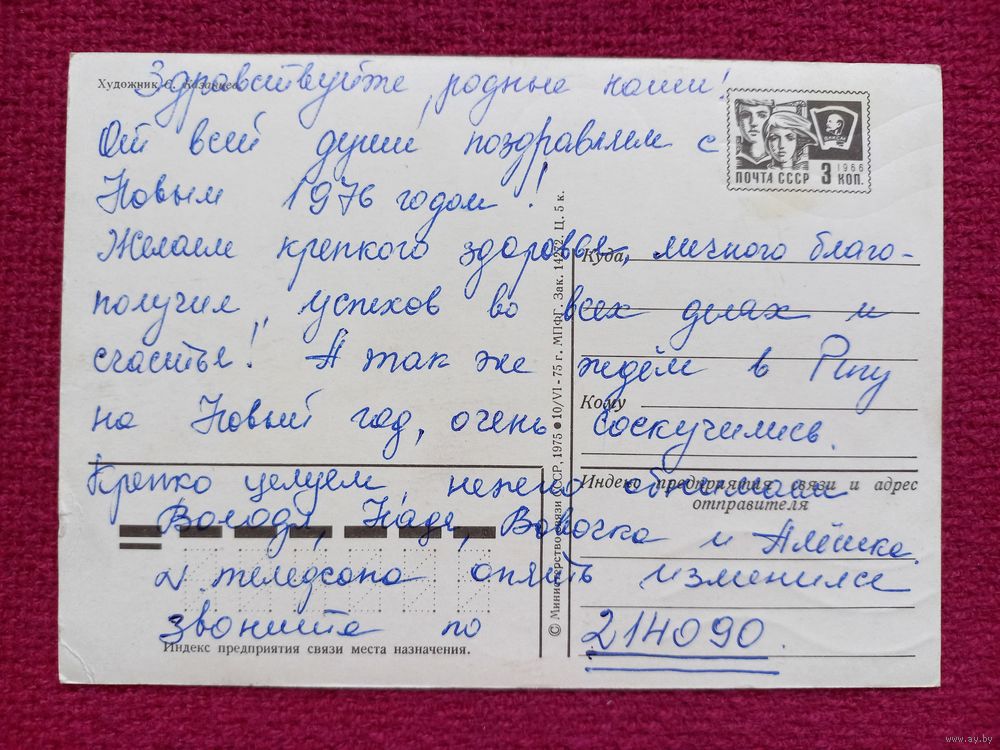 Художник С. Казанцев
Здравствуйте, родные наши!
От всей души поздравляем с
Новым 1976 годом!
Желаем крепкого здоровья, личного благо-
получия, успехов во всех делах и
счастья! А так же ждём в Ригу
на Новый год, очень соскучились.
Крепко целуем, нежно обнимаем
Володя, Надя, Вовочка и Алёшка.
N телефона опять изменился
звоните по 214090.
ПОЧТА СССР
1966
3 КОП.
ВЛКСМ
Куда
Кому
Индекс предприятия связи и адрес
отправителя
Индекс предприятия связи места назначения.
© Министерство связи СССР, 1975 ● 10/VI-75 г. МПФГ. Зак. 14272. Ц. 5 к.
www.ay.by